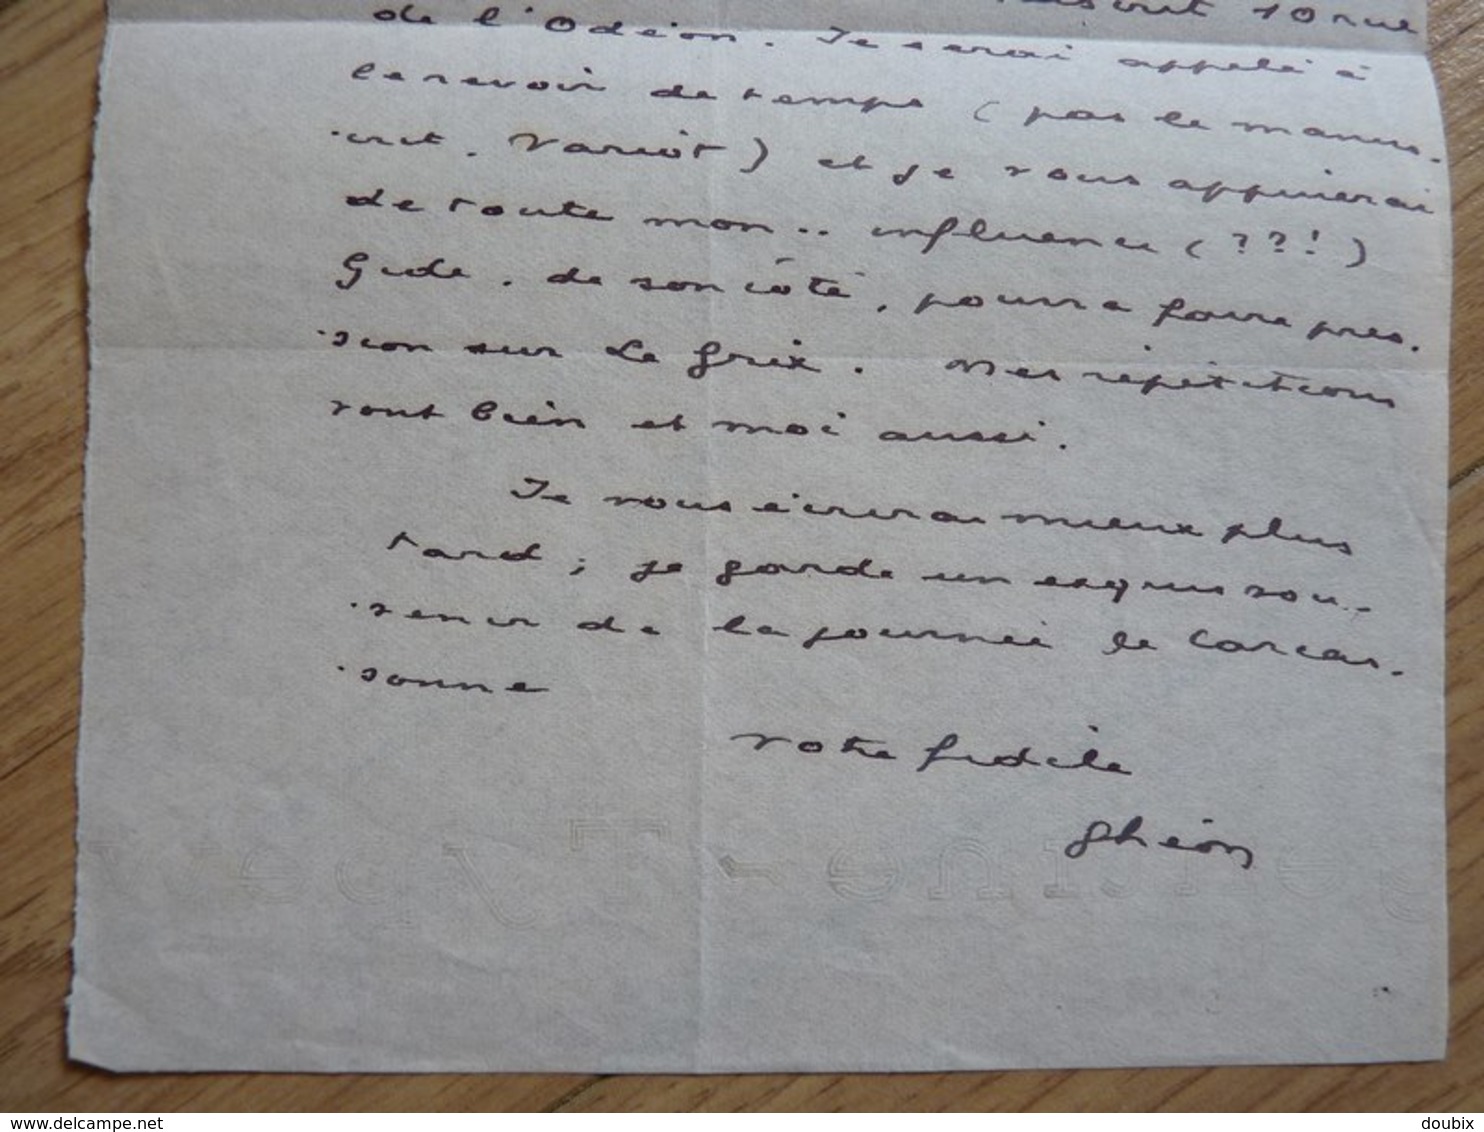 10 rue
de l'Odéon. Je serai appelé à
le revoir de temps (pas le manus-
-crit, Variot) et je vous appuierai
de toute mon.. influence (??!)
Gide, de son côté, pourra faire pres-
-sion sur Le Grix. Mes répétitions
vont bien et moi aussi.
Je vous écrirai mieux plus
tard ; je garde un exquis sou-
-venir de la journée de Carcas-
-sonne
votre fidèle
Ghéon
delcampe.net
doubix